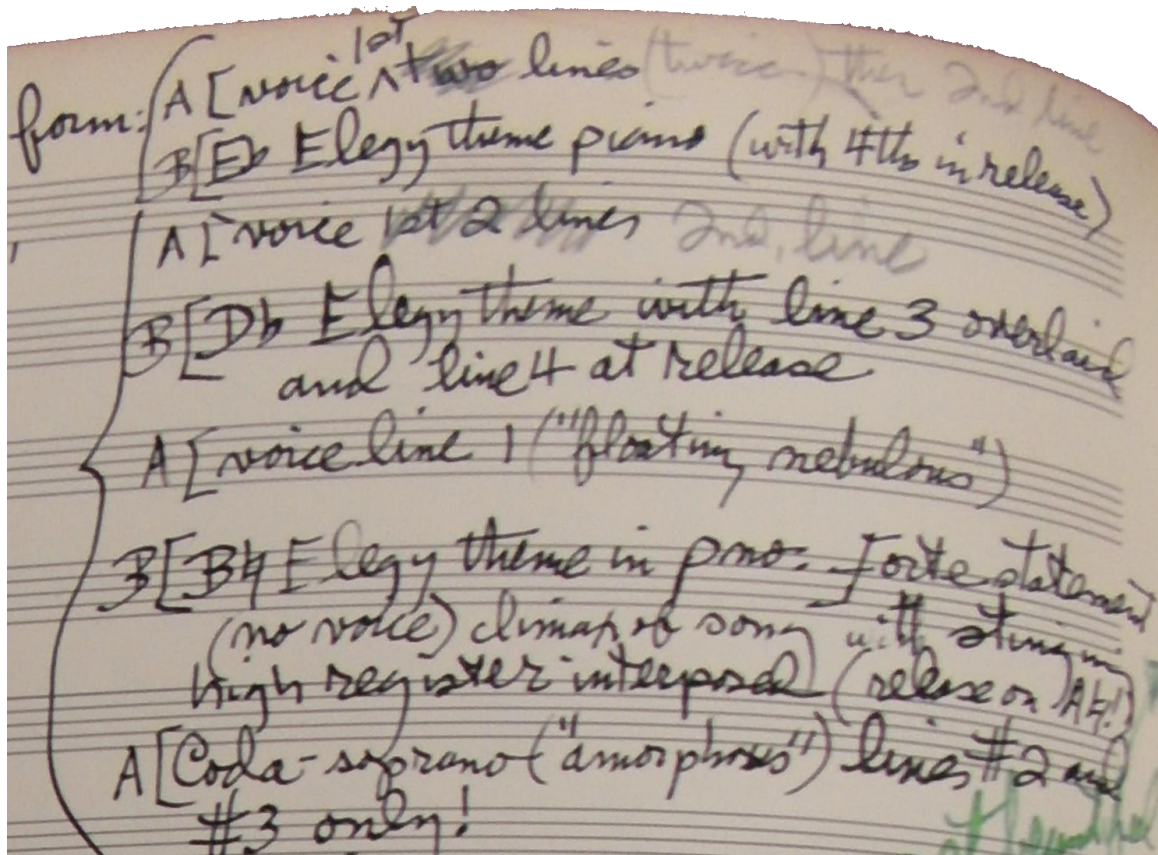 form: A [voice ^1st two lines (twice) then 2nd line
B [E♭ Elegy theme piano (with 4ths in release)
A [voice 1st 2 lines 2nd line
B [D♭ Elegy theme with line 3 overlaid
and line 4 at release
A [voice line 1 ("floating, nebulous")
B [B♮ Elegy theme in pno. Forte statement
(no voice) climax of song with sting in
high register interposed (release on A♮!)
A [Coda - soprano ("amorphous") lines #2 and
#3 only!